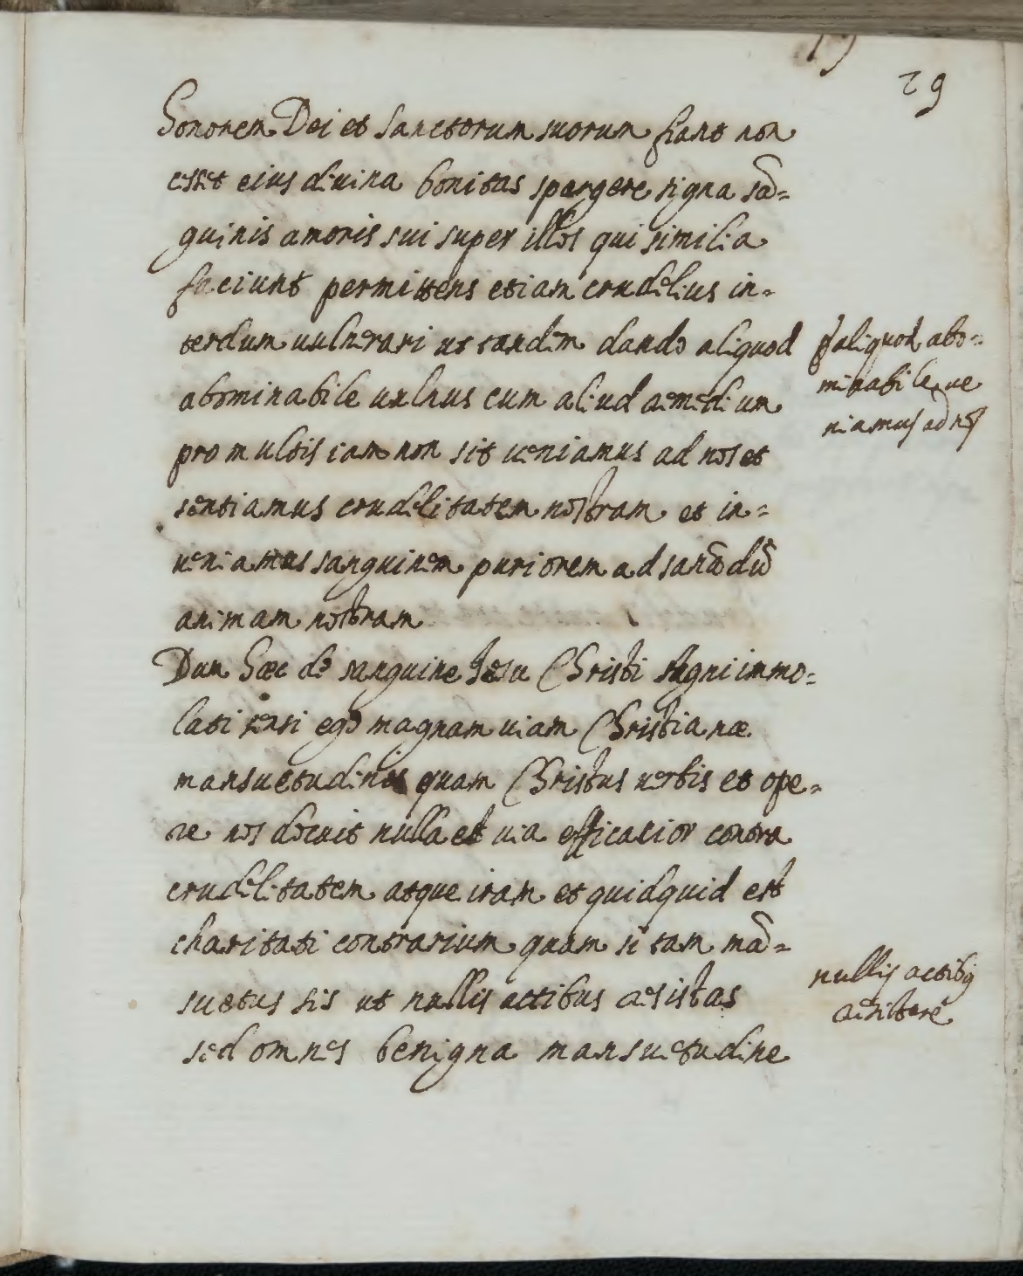 19
29
honorem Dei et Sanctorum suorum fiant non
esset eius diuina bonitas spargere signa sã=
guinis amoris sui super illos qui similia
faciunt permittens etiam crudelius in=
terdum uulnerari ut tandem dando aliquod
abominabile uulnus cum aliud remedium
pro multis iam non sit ueniamus ad nos et
sentiamus crudelitatem nostram et in=
ueniamus sanguinem puriorem ad sanãdũ
animam nostram
Dum hæc de sanguine Iesu Christi Agni immo=
lati sensi ego magnam uiam Christianæ
mansuetudinis quam Christus uerbis et ope=
re nos docuit nulla est uia efficacior contra
crudelitatem atque iram et quidquid est
charitati contrarium quam si tam mã=
suetus sis ut nullis actibus resistas
sed omnes benigna mansuetudine
aliquod abo=
minabile ue
niamus ad nos
nullis actibus
resistere